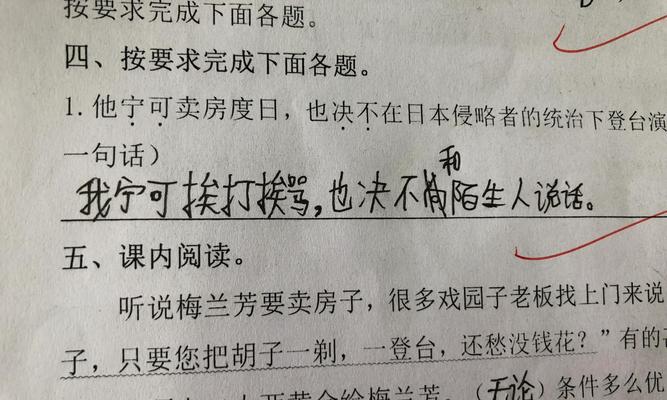 按要求完成下面各题。
四、按要求完成下面各题。
1. 他宁可卖房度日，也决不在日本侵略者的统治下登台演
一句话）
我宁可挨打挨骂，也决不和陌生人说话。
五、课内阅读。
听说梅兰芳要卖房子，很多戏园子老板找上门来说
子，只要您把胡子一剃，一登台，还愁没钱花？”有的
给梅兰芳。（无论）条件多么优